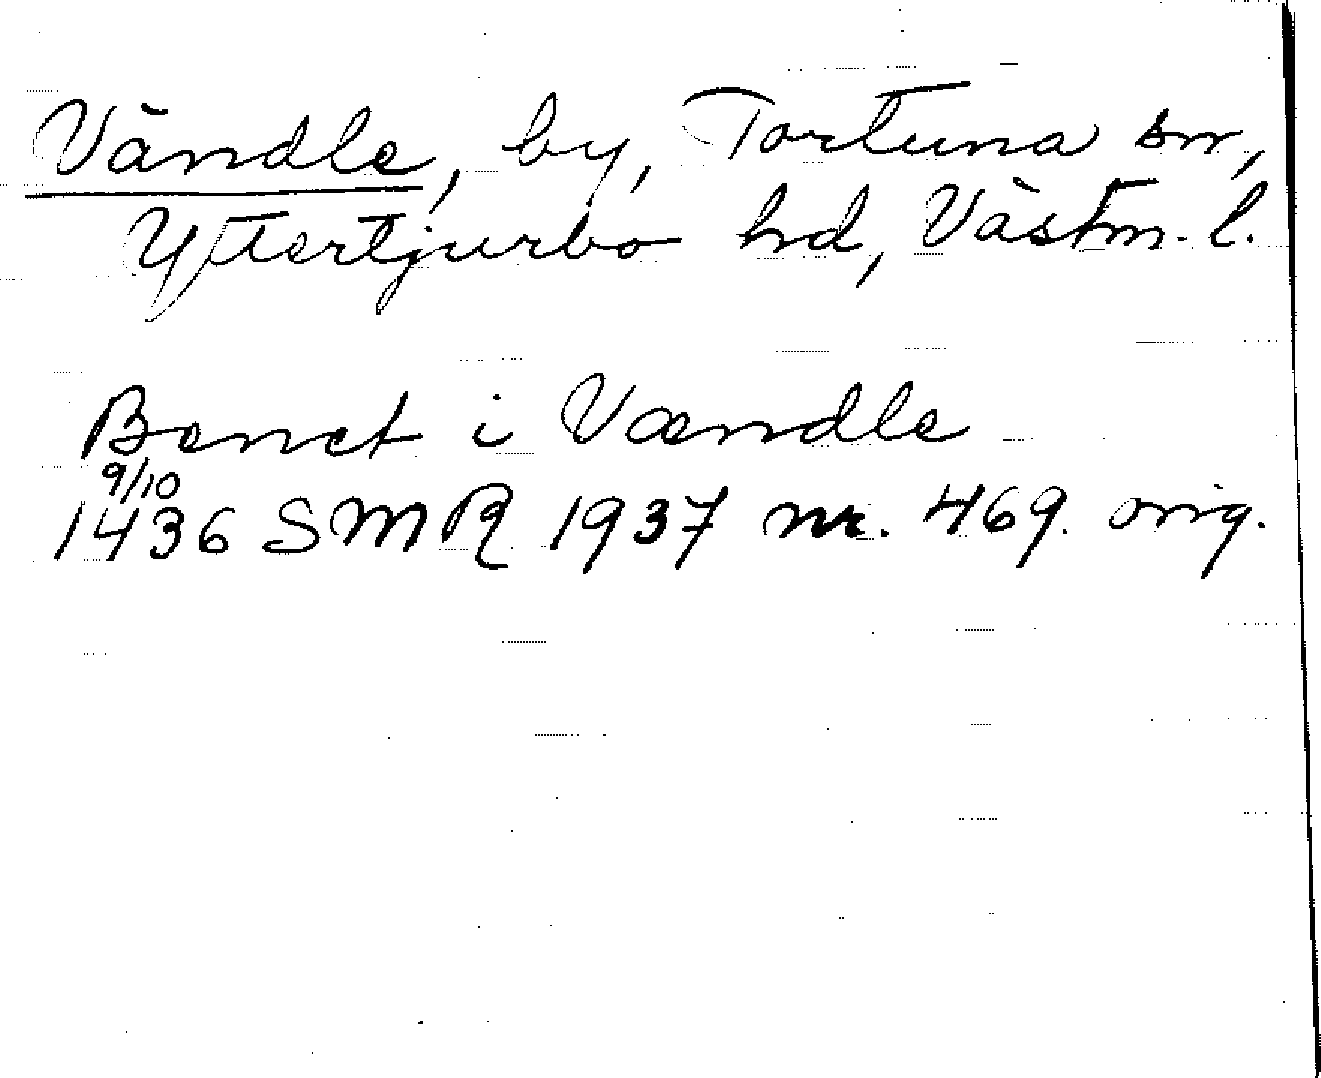 Vändle, by, Tortuna sn,
Yttertjurbo hd, Västm. l.
Benct i Vændle
9/10
1436 SMR 1937 nr. 469. orig.